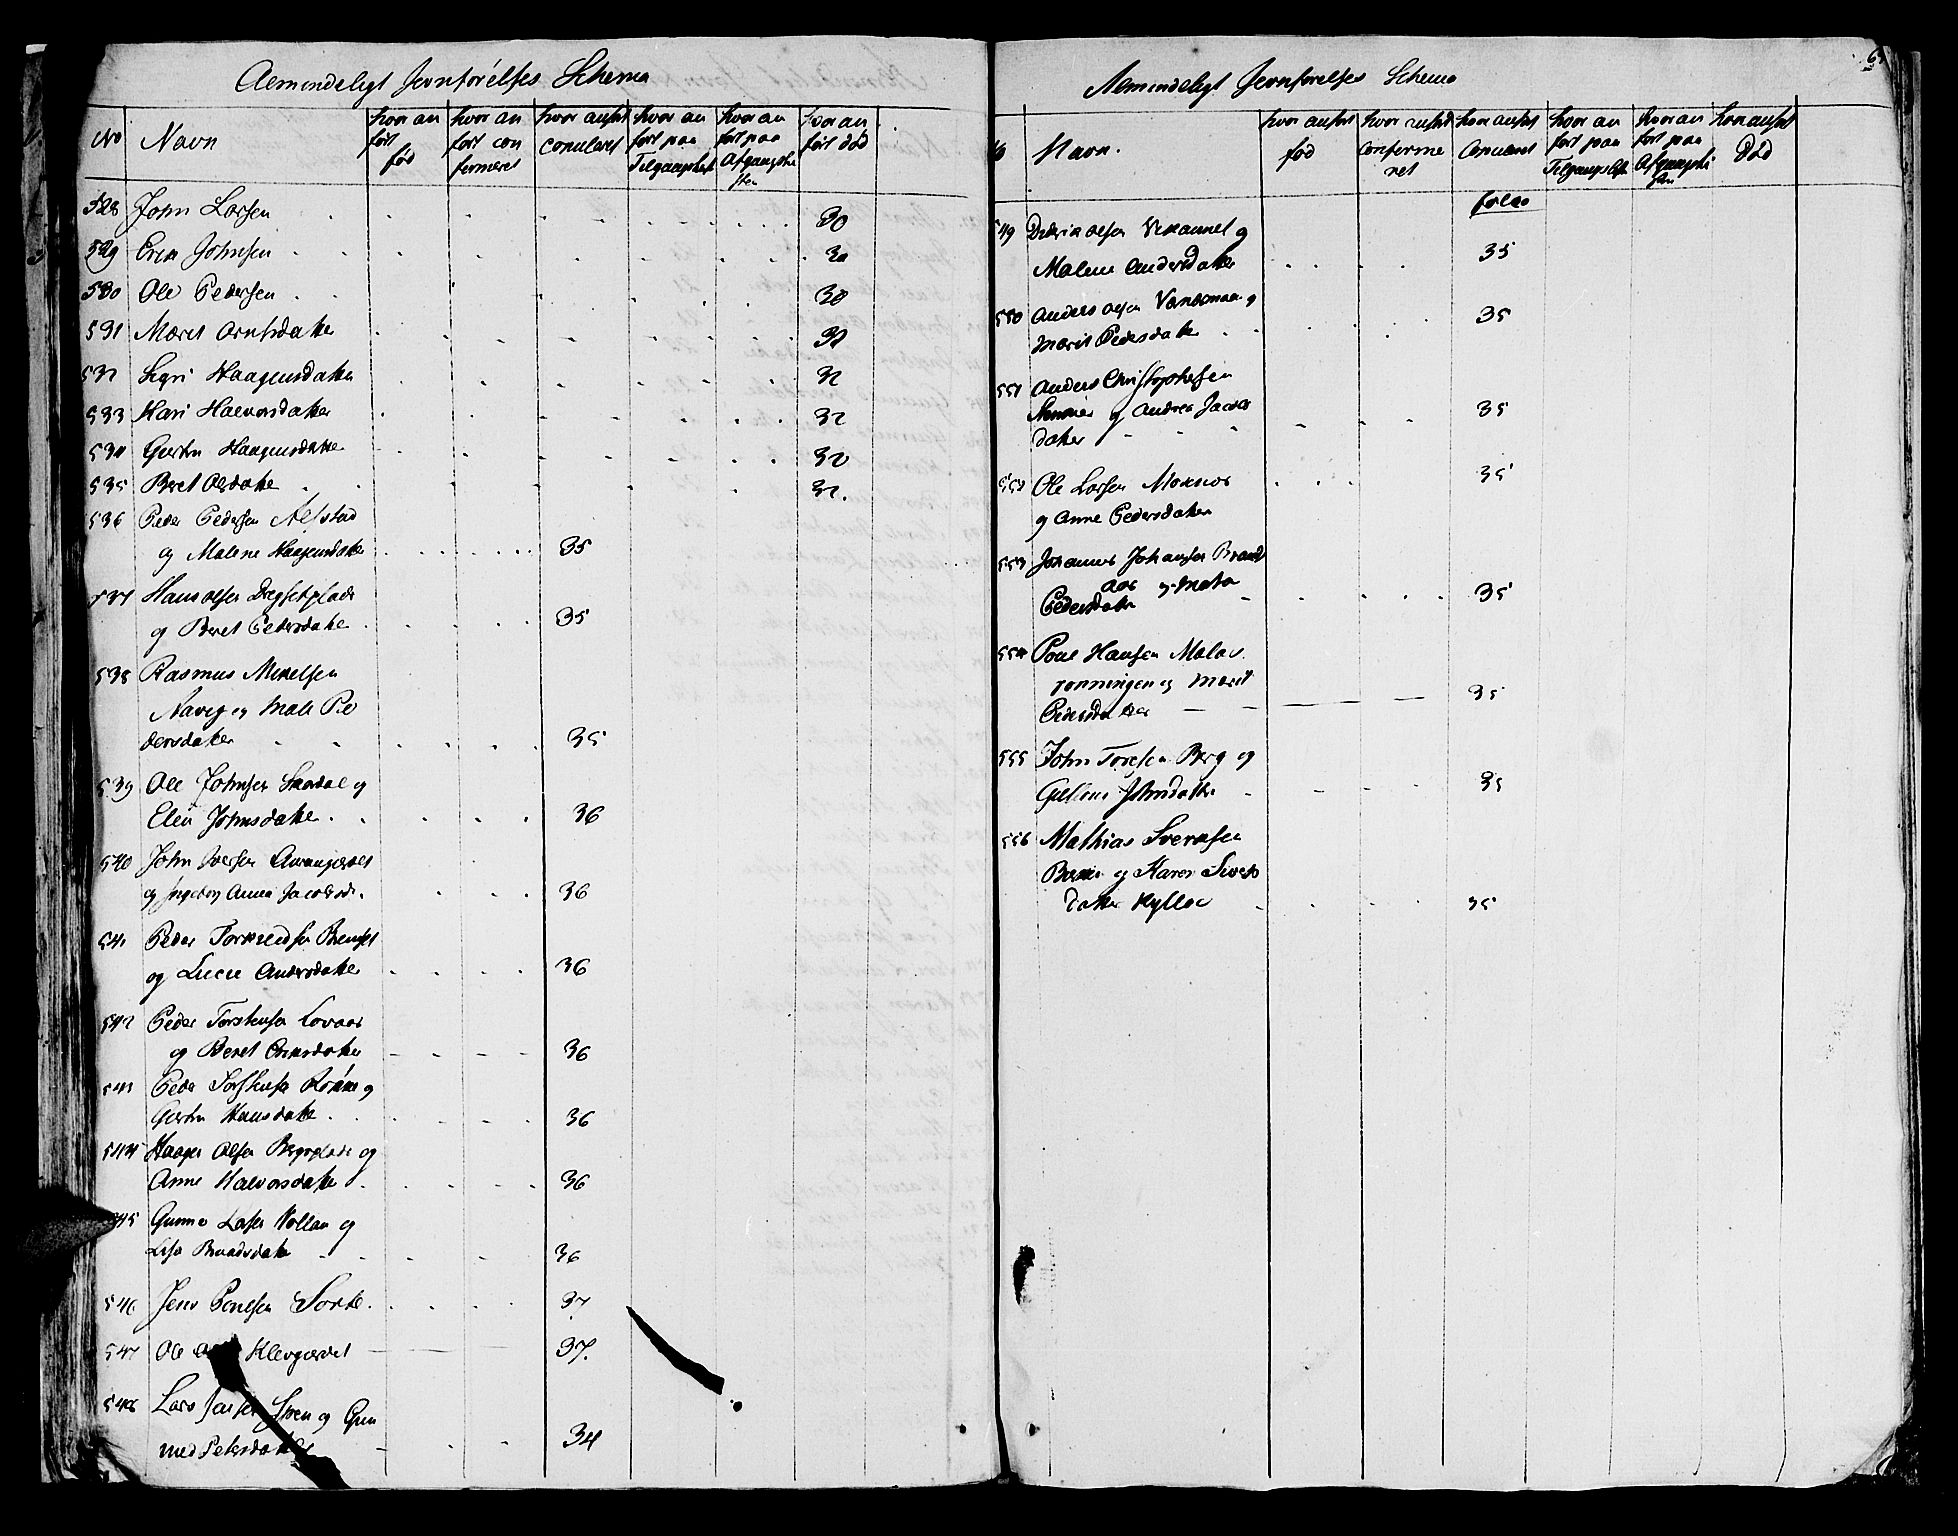 Almindeligt Jevnførelses Schema
No Navn hvor an ført fød hvor an ført confermeret hvor anført copuleret hvor an ført paa Tilgangslist hvor an ført paa Afgangslisten hvor an ført død
528 John Larsen 30
529 Erik Johnsen 30
530 Ole Pedersen 30
531 Meret Arntsdatter
532 Sigri Haagensdatter 32
533 Kari Halvorsdatter 32
534 Gurtru Haagensdatter 32
535 Beret Olsdatter 32.
536 Peder Pedersen Aelstad
og Malene Haagensdatter 35
537 Hans Olsen Dragsetplads
og Beret Pedersdatter 35
538 Rasmus Mikelsen
Naveg og Mali Pe
dersdatter 35
539 Ole Johnsen Skardal og
Elen Johnsdatter 36
540 John Iversen Aunangjerdet
og Ingebor Anna Jacobsd. 36
541 Peder Torkeldsen Brenset
og Lucie Andersdatter 36
542 Peder Torstensen Lovaas
og Beret Eriksdatter 36
543 Peder Torstensen Rokne og
Gurtru Hansdatter 36
544 Haagen Olsen Bergplads og
Anne Halvorsdatter 36
545 Gunner Larsen Vollan og
Lisa Baardsdatter 36
546 Jens Poulsen Sorte. 37
547 Ole Klevgjerdet 37.
548 Lars Jensen Steen og Gun
ned Petersdatter 34
Almindeligt Jevnførelses Schema
Navn. hvor anført fød hvor anført confermeret hvor anført Copuleret hvor an ført paa Tilgangslist hvor an ført paa Afgangslisten hvor anført Død
folio
549 Diderik Olsen Vikamnel og
Malene Andersdatter 35
550 Anders Olsen og
Marit Pedersdatter 35
551 Anders Christophersen
og Andrea Jacobs
datter 35
552 Ole Larsen Moknes 35
og Anne Pedersdatter
553 Johannes Johansen Brands
aas og Mata
Pedersdatter 35
554 Poul Hansen Malas
rønningen og Marit
Pedersdatter 35
555 John Toresen Berg og
Gullow Johnsdatter 35
556 Mathias Svendsen
og Karen Siverts
datter Hylla 35